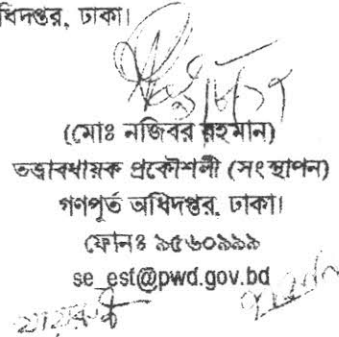 ধিদপ্তর, ঢাকা।
(মোঃ নজিবর রহমান)
তত্ত্বাবধায়ক প্রকৌশলী (সংস্থাপন)
গণপূর্ত অধিদপ্তর, ঢাকা।
ফোনঃ ৯৫৬০৯৯৯
se_est@pwd.gov.bd